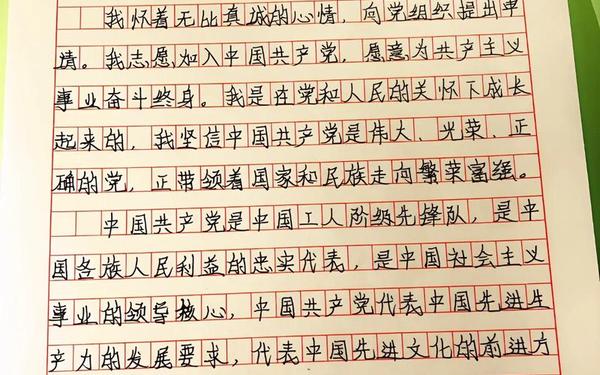 我怀着无比真诚的心情，向党组织提出申
请。我志愿加入中国共产党，愿意为共产主义
事业奋斗终身。我是在党和人民的关怀下成长
起来的，我坚信中国共产党是伟大、光荣、正
确的党，正带领着国家和民族走向繁荣富强。
中国共产党是中国工人阶级先锋队，是中
国各族人民利益的忠实代表，是中国社会主义
事业的领导核心，中国共产党代表中国先进生
产力的发展要求，代表中国先进文化的前进方